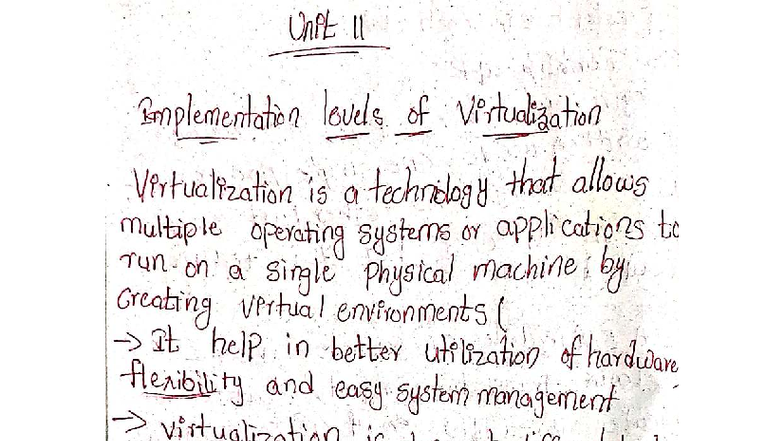 Unit II
Implementation levels of Virtualization
Virtualization is a technology that allows
multiple operating systems or applications to
run on a single physical machine by
creating virtual environments (
→ It help in better utilization of hardware
flexibility and easy system management
→ virtualization is